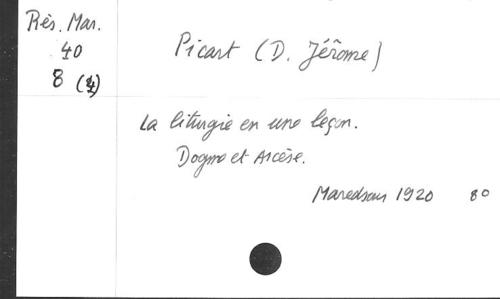 Rés. Mar.
40
8 (4)
Picart (D. Jérôme)
La liturgie en une leçon.
Dogme et Ascèse.
Maredsous 1920 80